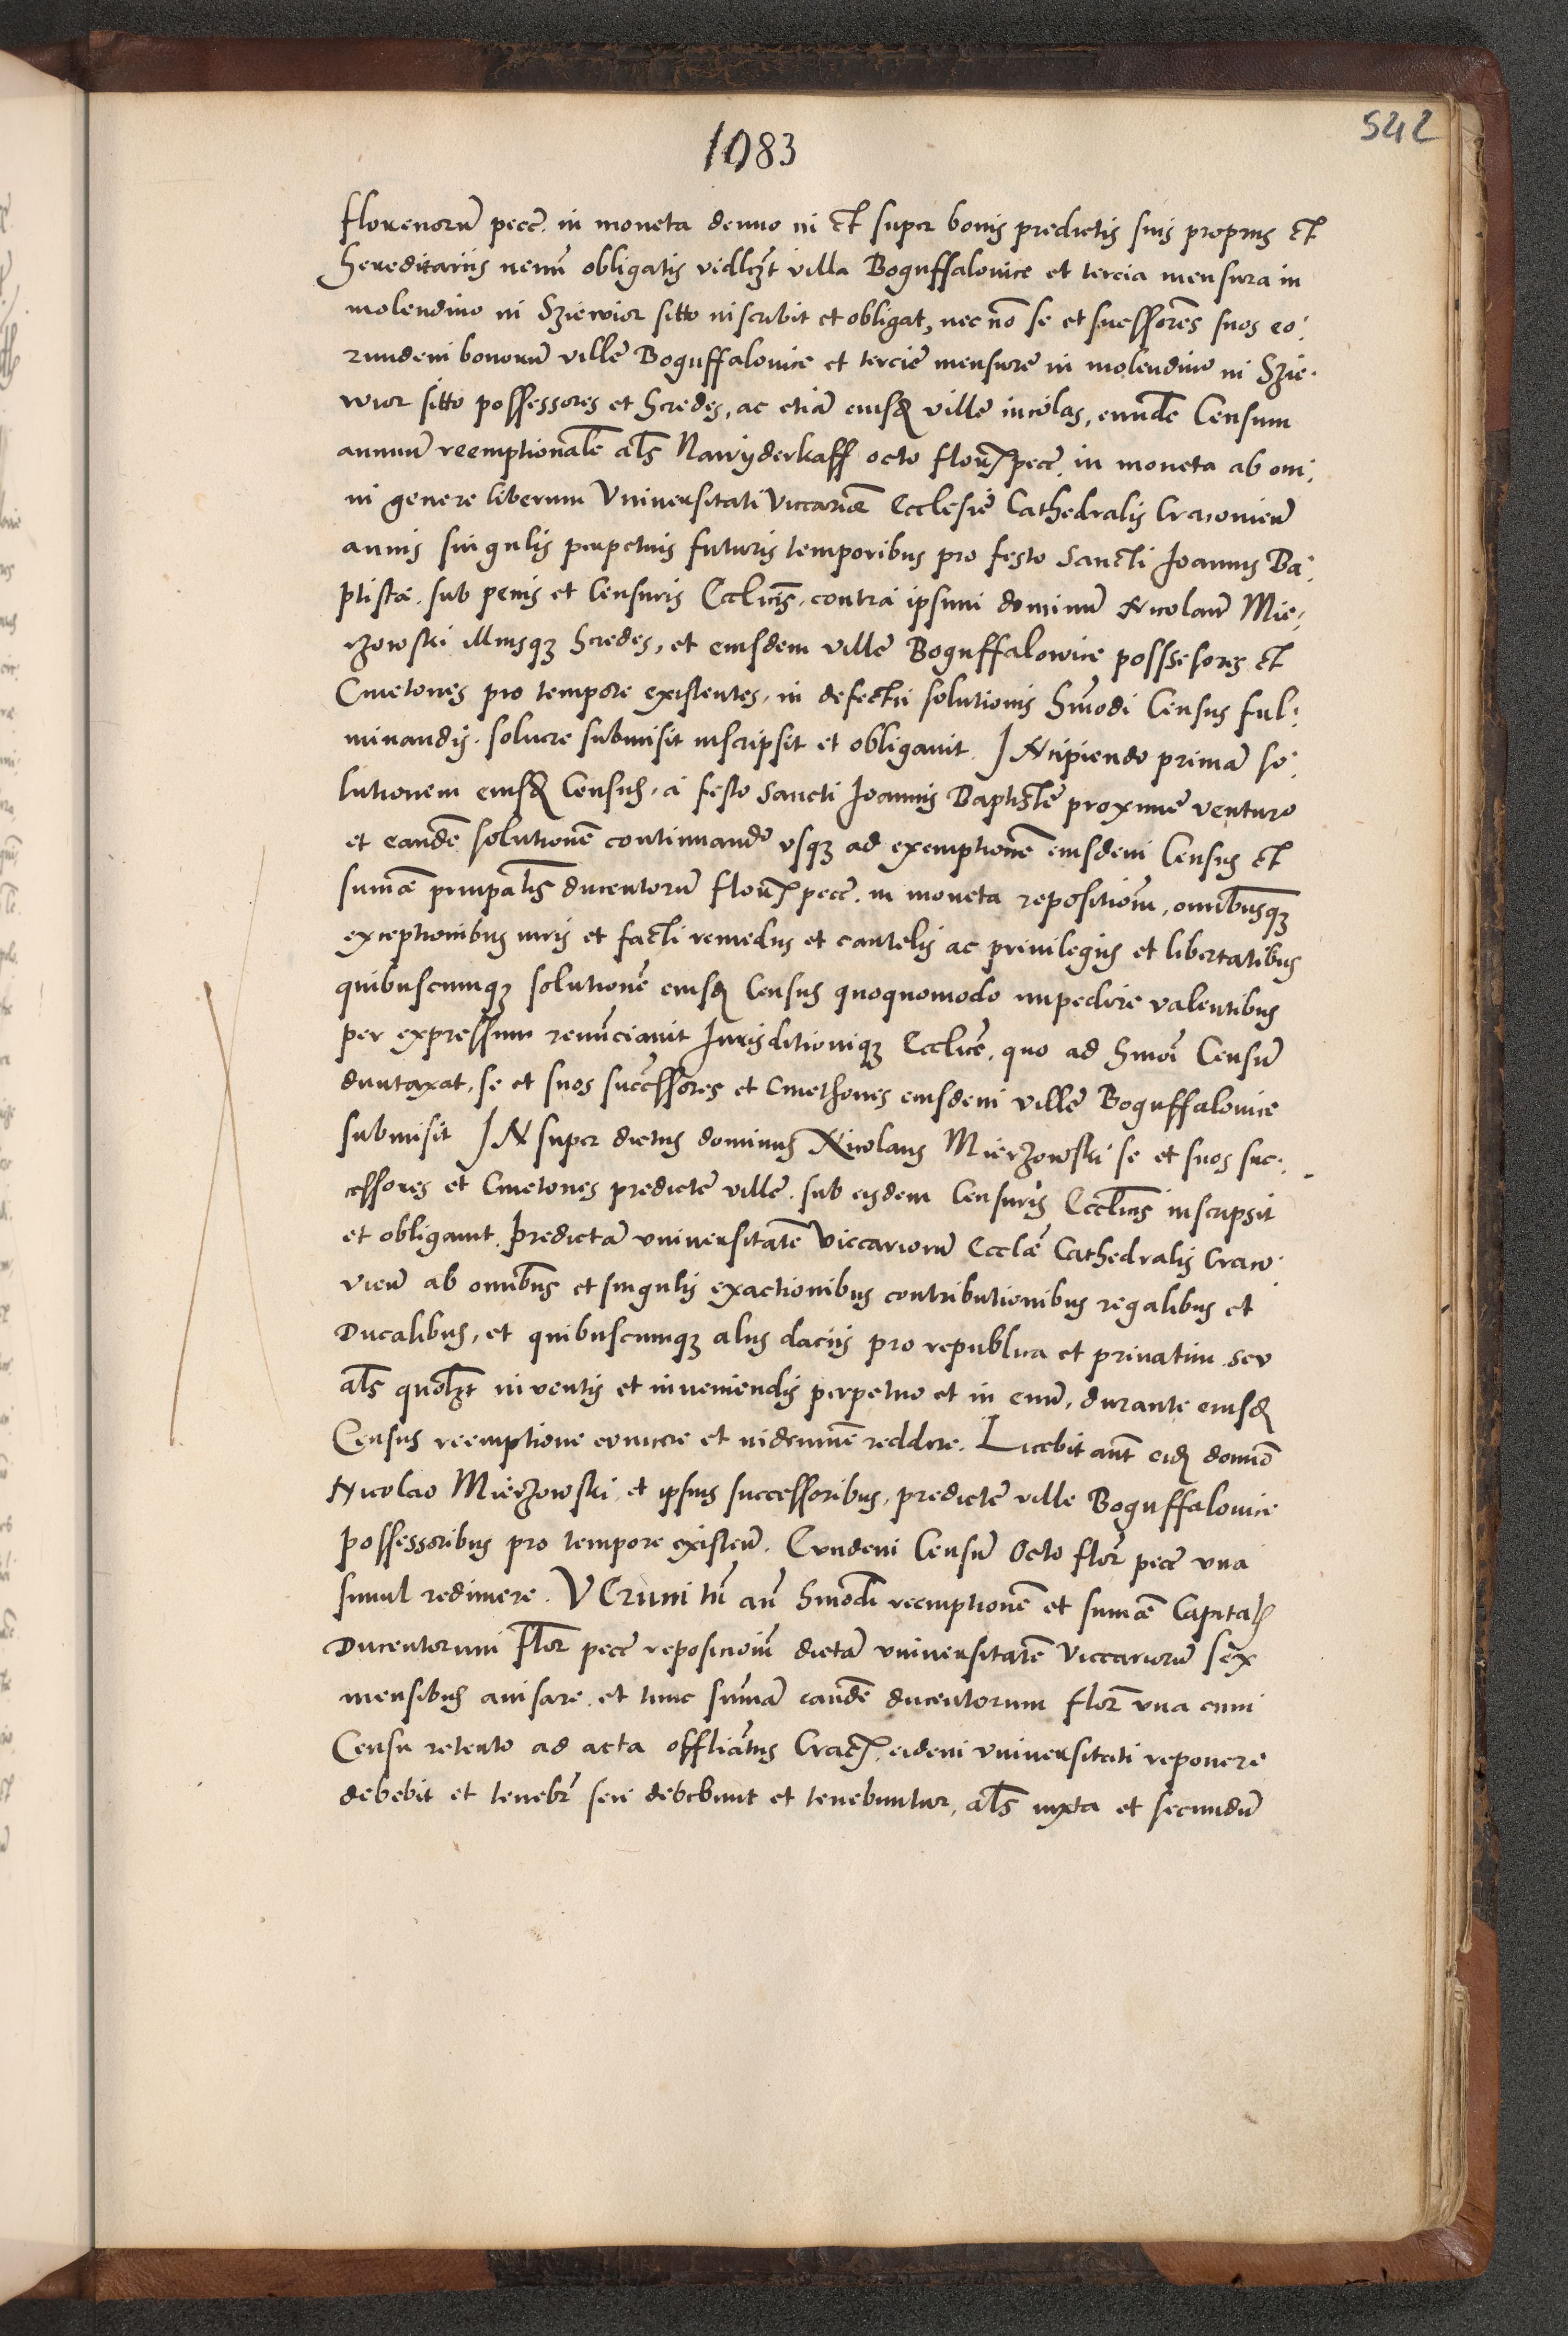 1083
542
florenorũ pecc̃. in moneta denuo in et super bonis predictis suis proprijs et
hereditarijs nemĩ obligatis vidlzt villa Boguffalouice et tercia mensura in
molendino in Sziewior sitto inscribit et obligat, nec nõ se et sucessores suos eo:
rundem bonorũ villę Boguffalouice et tercię mensurę in molendino in Szie:
wior sitto possessores et heredes, ac etiã eiusd villę incolas, eundẽ Censum
annuũ reemptionalẽ als Nawyderkaff octo flor pecc̃. in moneta ab om:
ni genere liberum Vniuersitati Viccariorũ Ecclesię Cathedralis Cracouien̄
annis singulis perpetuis futuris temporibus pro festo Sancti Joannis Ba:
ptistæ. sub penis et Censuris Eccl̃icis, contra ipsum dominũ Nicolaũ Mie:
rzowski illiusq heredes, et eiusdem villę Boguffalowice posssesores et
Cmetones pro tempore existentes, in defectũ solutionis hm̃odi Census ful:
minandis. soluere submisit inscripsit et obligauit. INcipiendo primã so:
lutionem eiusd Census, a festo Sancti Joannis Baptistę proximę venturo
et eandẽ solutionẽ continuando vsq ad exemptionẽ eiusdem Census et
sum̃æ principalis ducentorũ flor pecc̃. in moneta repositionẽ, omnibusq
exceptionibus iuris et facti remedijs et cautelis ac priuilegijs et libertatibus
quibuscumq solutionẽ eiusd Census quoquomodo impedire valentibus
per expressum renũciauit Jurisditioniq Eccl̃icę, quo ad hm̃oi Censũ
duntaxat, se et suos successores et Cmethones eiusdem villę Boguffalouice
submisit INsuper dictus dominus Nicolaus Mierzowski se et suos suc:
cessores et Cmetones predictę villę. sub eisdem Censuris Eccl̃icis inscripsit
et obligauit. predictã vniuersitatẽ Viccariorũ Eccl̃æ Cathedralis Craco:
vien̄ ab om̃ibus et singulis exactionibus contributionibus regalibus et
Ducalibus, et quibuscumq alijs dacijs pro republica et priuatim seu
als quolzt inventis et inveniendis perpetuo et in euũ, durante eiusd
Census reemptione euincere et indemnẽ reddere. Licebit aut̃ eid domino
Nicolao Mierzowski, et ipsius successoribus, predictę ville Boguffalouice
possessoribus pro tempore existeñ. Eundem Censũ Octo flor̃ pecc̃ vna
simul redimere. VErum tñ añ hm̃odi reemptionẽ et sum̃æ Capital
Ducentorum flor pecc̃ reposicionẽ dictã vniuersitatẽ Viccariorũ sex
mensibus auisare. et tunc sum̃ã eandẽ ducentorum flor̃ vna cum
Censu retento ad acta offitiatus Crac, eidem vniuersitati reponere
debebit et tenebr̃ seu debebunt et tenebuntur, als iuxta et secundũ